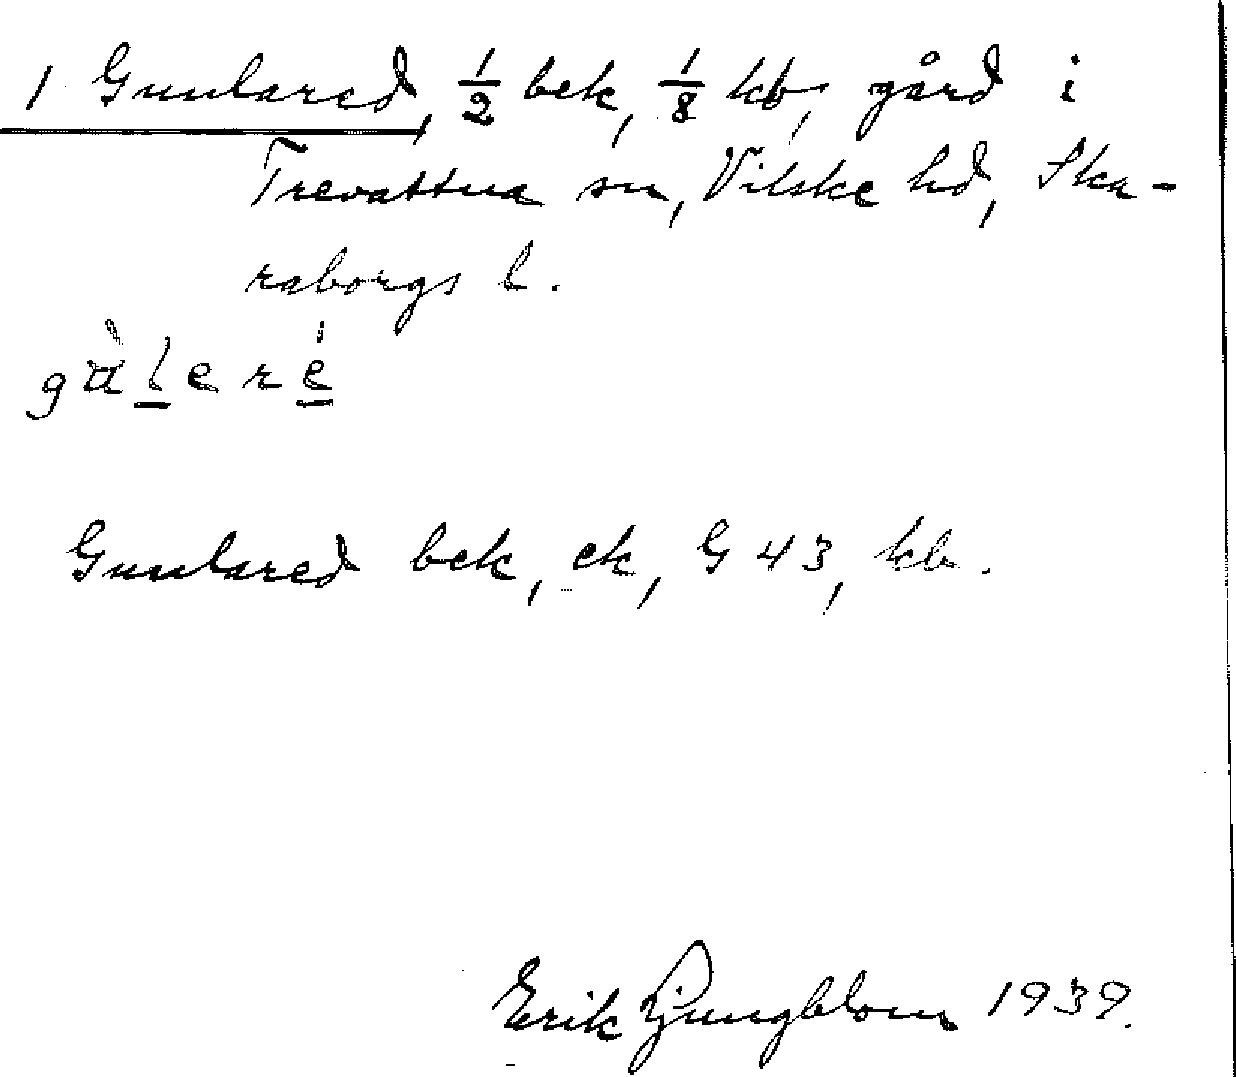 1 Gunlared, 1/2 bek, 1/8 kb, gård i
Trevattna sn, Vilske hd, Ska-
raborgs l.
Gunlared bek, ek, G 43, kb.
Erik Ljungblom 1939.